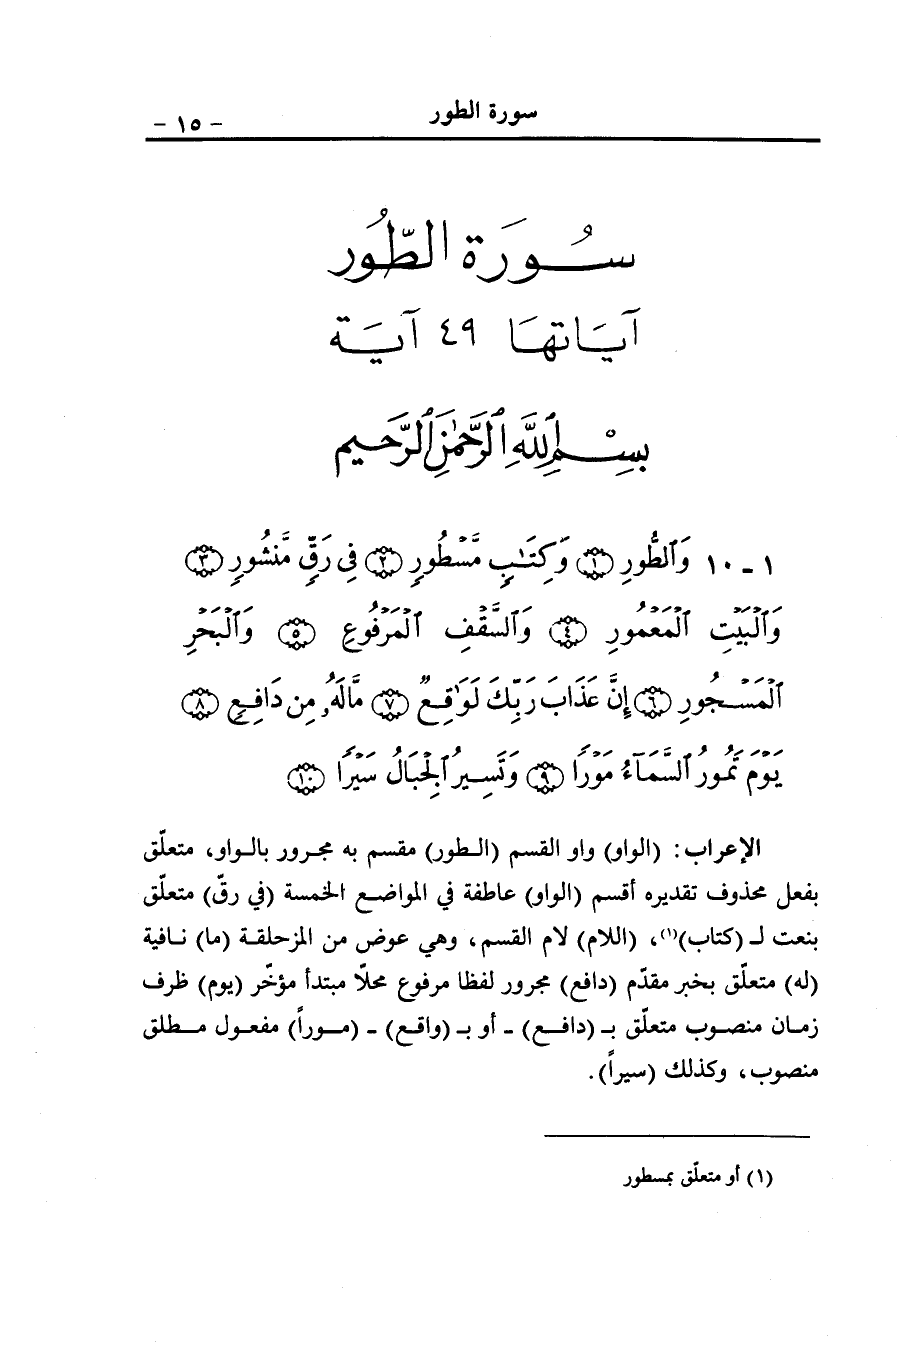 سورة الطور
- ١٥ -
سُورَة الطّور
آيَاتهَا ٤٩ آيَة
بِسْمِ ٱللَّهِ ٱلرَّحْمَٰنِ ٱلرَّحِيمِ
١ - ١٠ وَٱلطُّورِ ۝١ وَكِتَٰبٍ مَّسْطُورٍ ۝٢ فِي رَقٍّ مَّنشُورٍ ۝٣
وَٱلْبَيْتِ ٱلْمَعْمُورِ ۝٤ وَٱلسَّقْفِ ٱلْمَرْفُوعِ ۝٥ وَٱلْبَحْرِ
ٱلْمَسْجُورِ ۝٦ إِنَّ عَذَابَ رَبِّكَ لَوَٰقِعٌ ۝٧ مَّا لَهُۥ مِن دَافِعٍ ۝٨
يَوْمَ تَمُورُ ٱلسَّمَآءُ مَوْرًا ۝٩ وَتَسِيرُ ٱلْجِبَالُ سَيْرًا ۝١٠
الإعراب: (الواو) واو القسم (الطور) مقسم به مجرور بالواو، متعلّق
بفعل محذوف تقديره أقسم (الواو) عاطفة في المواضع الخمسة (في رقّ) متعلّق
بنعت لـ (كتاب)(١)، (اللام) لام القسم، وهي عوض من المزحلقة (ما) نافية
(له) متعلّق بخبر مقدّم (دافع) مجرور لفظا مرفوع محلاّ مبتدأ مؤخّر (يوم) ظرف
زمان منصوب متعلّق بـ (دافع) - أو بـ (واقع) - (موراً) مفعول مطلق
منصوب، وكذلك (سيراً).
(١) أو متعلّق بمسطور